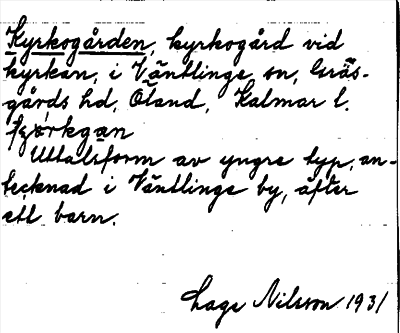 Kyrkogården, kyrkogård vid
kyrkan, i Ventlinge sn, Gräs-
gårds hd, Öland, Kalmar l.
Uttalsform av yngre typ, an-
tecknad i Ventlinge by, efter
ett barn.
Lage Nilsson 1931